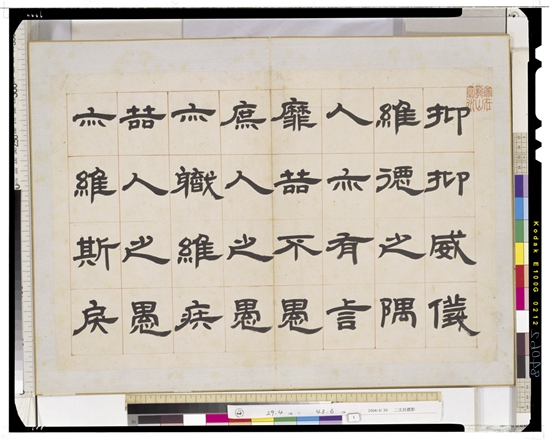 抑抑威儀
維德之隅
人亦有言
靡喆不愚
庶人之愚
亦職維疾
喆人之愚
亦維斯戾
Kodak E100G 0212
29.4
48.6